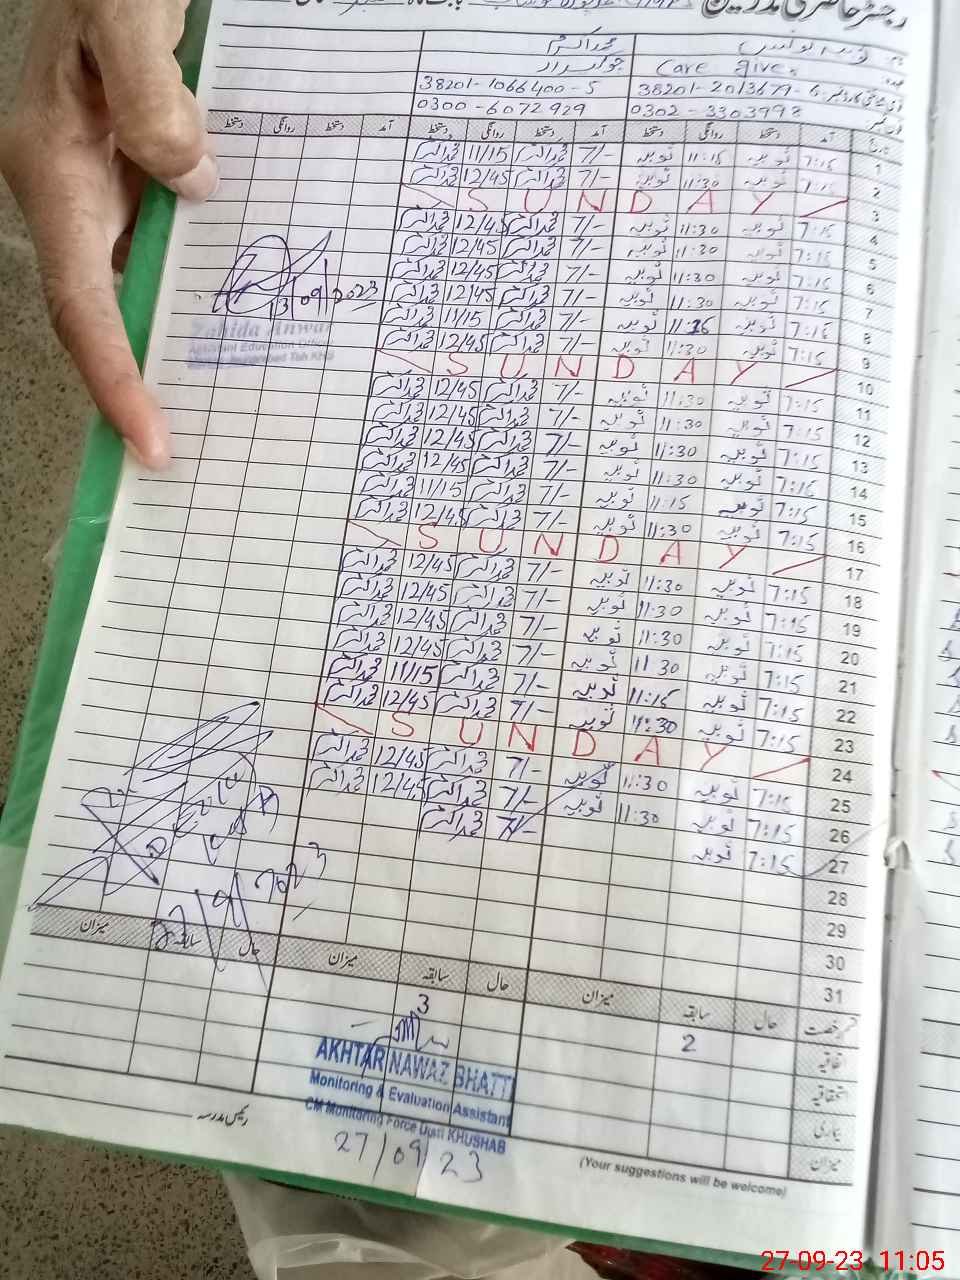 رجسٹر حاضری مدرسین
محمد اکرم
Care giver
38201-1066400-5 38201-2013679-6
0300-6072929 0302-3303998
آمد دستخط روانگی دستخط آمد دستخط روانگی دستخط آمد دستخط روانگی دستخط
1 7:15 ثوبیہ 11:15 ثوبیہ 7/- محمد اکرم 11/15 محمد اکرم
2 7:15 ثوبیہ 11:30 ثوبیہ 7/- محمد اکرم 12/45 محمد اکرم
3 SUNDAY
4 7:15 ثوبیہ 11:30 ثوبیہ 7/- محمد اکرم 12/45 محمد اکرم
5 7:15 ثوبیہ 11:30 ثوبیہ 7/- محمد اکرم 12/45 محمد اکرم
6 7:15 ثوبیہ 11:30 ثوبیہ 7/- محمد اکرم 12/45 محمد اکرم
7 7:15 ثوبیہ 11:30 ثوبیہ 7/- محمد اکرم 12/45 محمد اکرم
8 7:15 ثوبیہ ثوبیہ 7/- محمد اکرم 11/15 محمد اکرم
9 7:15 ثوبیہ 11:30 ثوبیہ 7/- محمد اکرم 12/45 محمد اکرم
10 SUNDAY
11 7:15 ثوبیہ 11:30 ثوبیہ 7/- محمد اکرم 12/45 محمد اکرم
12 7:15 ثوبیہ 11:30 ثوبیہ 7/- محمد اکرم 12/45 محمد اکرم
13 7:15 ثوبیہ 11:30 ثوبیہ 7/- محمد اکرم 12/45 محمد اکرم
14 7:15 ثوبیہ 11:30 ثوبیہ 7/- محمد اکرم 12/45 محمد اکرم
15 7:15 ثوبیہ 11:15 ثوبیہ 7/- محمد اکرم 11/15 محمد اکرم
16 7:15 ثوبیہ 11:30 ثوبیہ 7/- محمد اکرم 12/45 محمد اکرم
17 SUNDAY
18 7:15 ثوبیہ 11:30 ثوبیہ 7/- محمد اکرم 12/45 محمد اکرم
19 7:15 ثوبیہ 11:30 ثوبیہ 7/- محمد اکرم 12/45 محمد اکرم
20 7:15 ثوبیہ 11:30 ثوبیہ 7/- محمد اکرم 12/45 محمد اکرم
21 7:15 ثوبیہ 11:30 ثوبیہ 7/- محمد اکرم 12/45 محمد اکرم
22 7:15 ثوبیہ 11:15 ثوبیہ 7/- محمد اکرم 11/15 محمد اکرم
23 7:15 ثوبیہ 11:30 ثوبیہ 7/- محمد اکرم 12/45 محمد اکرم
24 SUNDAY
25 7:15 ثوبیہ 11:30 ثوبیہ 7/- محمد اکرم 12/45 محمد اکرم
26 7:15 ثوبیہ 11:30 ثوبیہ 7/- محمد اکرم 12/45 محمد اکرم
27 7:15 ثوبیہ 7/- محمد اکرم
28
29
30
31
13/09/2023
Zahida Anwar
Assistant Education Officer
27/9/2023
حال سابقہ میزان حال سابقہ میزان حال سابقہ میزان
اتفاقیہ 2 3
استحقاقیہ
بیماری
میزان
AKHTAR NAWAZ BHATTI
Monitoring & Evaluation Assistant
CM Monitoring Force Distt KHUSHAB
27/09/23
رئیس مدرسہ
(Your suggestions will be welcome)
27-09-23 11:05